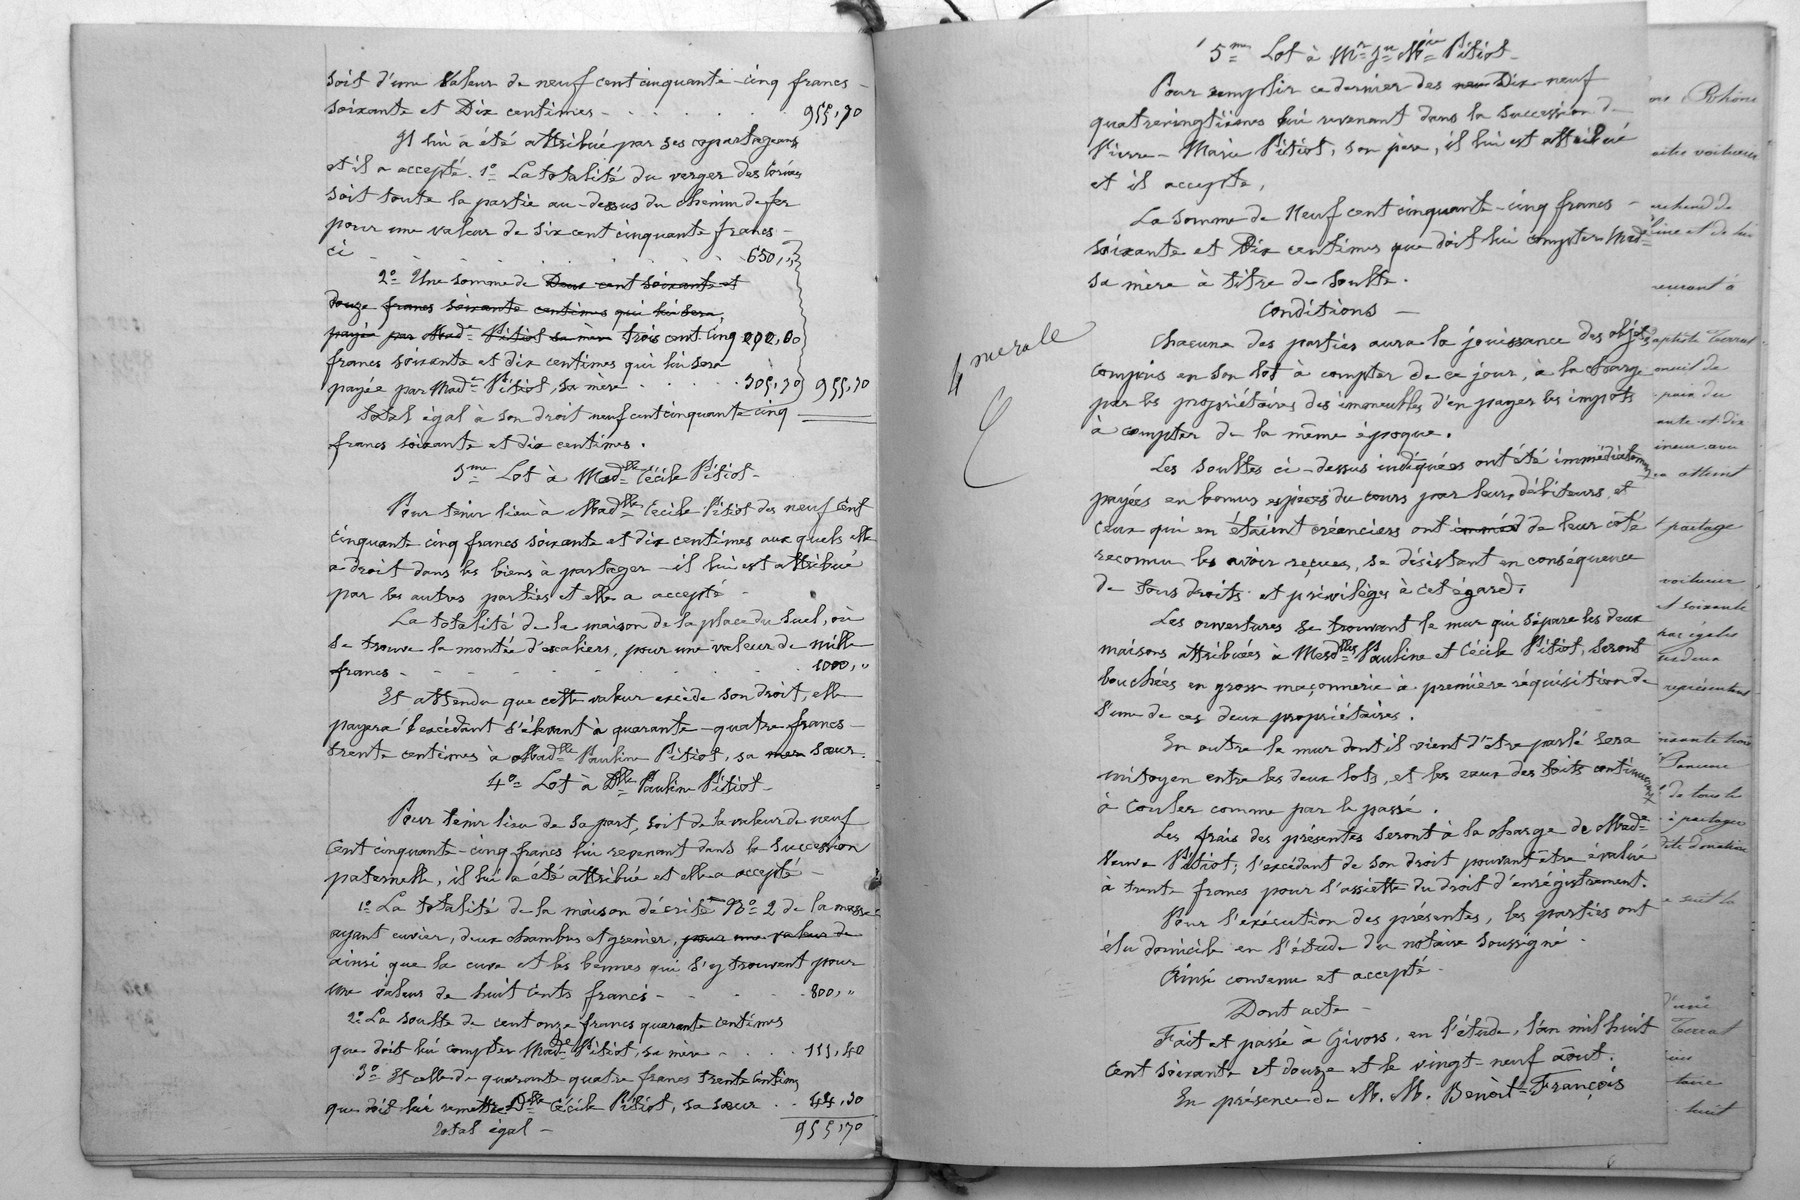 soit d'une valeur de neuf cent cinquante-cinq francs
soixante et Dix centimes - . . . . . . 955,70
Il lui a été attribué par ses copartageans
et il a accepté. 1º La totalité du verger des
soit toute la partie au-dessus du chemin de fer
pour une valeur de six cent cinquante francs -
ci - . . . . . . . 650,"
2º Une somme de Deux cent soixante et
douze francs soixante centimes qui lui sera
payée par Made Pitiot sa mère trois cent cinq
francs soixante et dix centimes qui lui sera
payée par Made Pitiot, sa mère . . . . . 305,70 955,70
total égal à son droit neuf cent cinquante cinq
francs soixante et dix centimes.
3me Lot à Madlle Cécile Pitiot -
Pour tenir lieu à Madlle Cécile Pitiot des neuf cent
cinquante cinq francs soixante et dix centimes aux quels elle
a droit dans les biens à partager - il lui est attribué
par les autres parties et elle a accepté -
La totalité de la maison de la place du Suel, où
se trouve la montée d'escaliers, pour une valeur de mille
francs - - - . . . . . . 1000,"
Et attendu que cette valeur excède son droit, elle
payera l'excédant s'élevant à quarante-quatre francs -
trente centimes à Madlle Pauline Pitiot, sa mere sœur.
4º Lot à Dlle Pauline Pitiot -
Pour tenir lieu de sa part, soit de la valeur de neuf
cent cinquante-cinq francs lui revenant dans la succession
paternelle, il lui a été attribué et elle a accepté -
1º La totalité de la maison décrite Nº 2 de la masse
ayant cuvier, deux chambres et grenier, pour une valeur de
ainsi que la cuve et les bennes qui s'y trouvent pour
une valeur de huit cents francs - - . . . 800,"
2º La soulte de cent onze francs quarante centimes
que doit lui compter Made Pitiot, sa mère - . . . 111,40
3º Et celle de quarante quatre francs trente centimes
que doit lui remettre Dlle Cécile Pitiot, sa sœur . . 44,30
Total égal - 955,70
5me Lot à Mr Jn Mie Pitiot -
Pour remplir ce dernier des neu Dix-neuf
quatrevingtièmes lui revenant dans la succession de
Pierre-Marie Pitiot, son père, il lui est attribué
et il accepte,
La somme de Neuf cent cinquante-cinq francs -
soixante et Dix centimes que doit lui compter Made
sa mère à titre de soulte.
Conditions -
Chacune des parties aura la jouissance des objets
compris en son lot à compter de ce jour, à la charge
par les propriétaires des immeubles d'en payer les impôts
à compter de la même époque.
4 me role
Les soultes ci-dessus indiquées ont été immédiatement
payées en bonnes espèces du cours par leurs débiteurs, et
ceux qui en étaient créanciers ont imméd de leur côté
reconnu les avoir reçues, se désistant en conséquence
de tous droits et privilèges à cet égard.
Les ouvertures se trouvant le mur qui sépare les deux
maisons attribuées à Mesdlles Pauline et Cécile Pitiot, seront
bouchées en grosse maçonnerie à première réquisition de
l'une de ces deux propriétaires.
En outre le mur dont il vient d'être parlé sera
mitoyen entre les deux lots, et les eaux des toits continueront
à couler comme par le passé.
Les frais des présentes seront à la charge de Made
Veuve Pitiot; l'excédant de son droit pouvant être évalué
à trente francs pour l'assiette du droit d'enrégistrement.
Pour l'exécution des présentes, les parties ont
élu domicile en l'étude du notaire soussigné -
Ainsi convenu et accepté -
Dont acte -
Fait et passé à Givors, en l'étude, l'an mil huit
cent soixante et douze et le vingt-neuf août.
En présence de M. M. Benoit-François
Rhône
voiturier
partage
voiturier
et soixante
Terrat
à partager
donation